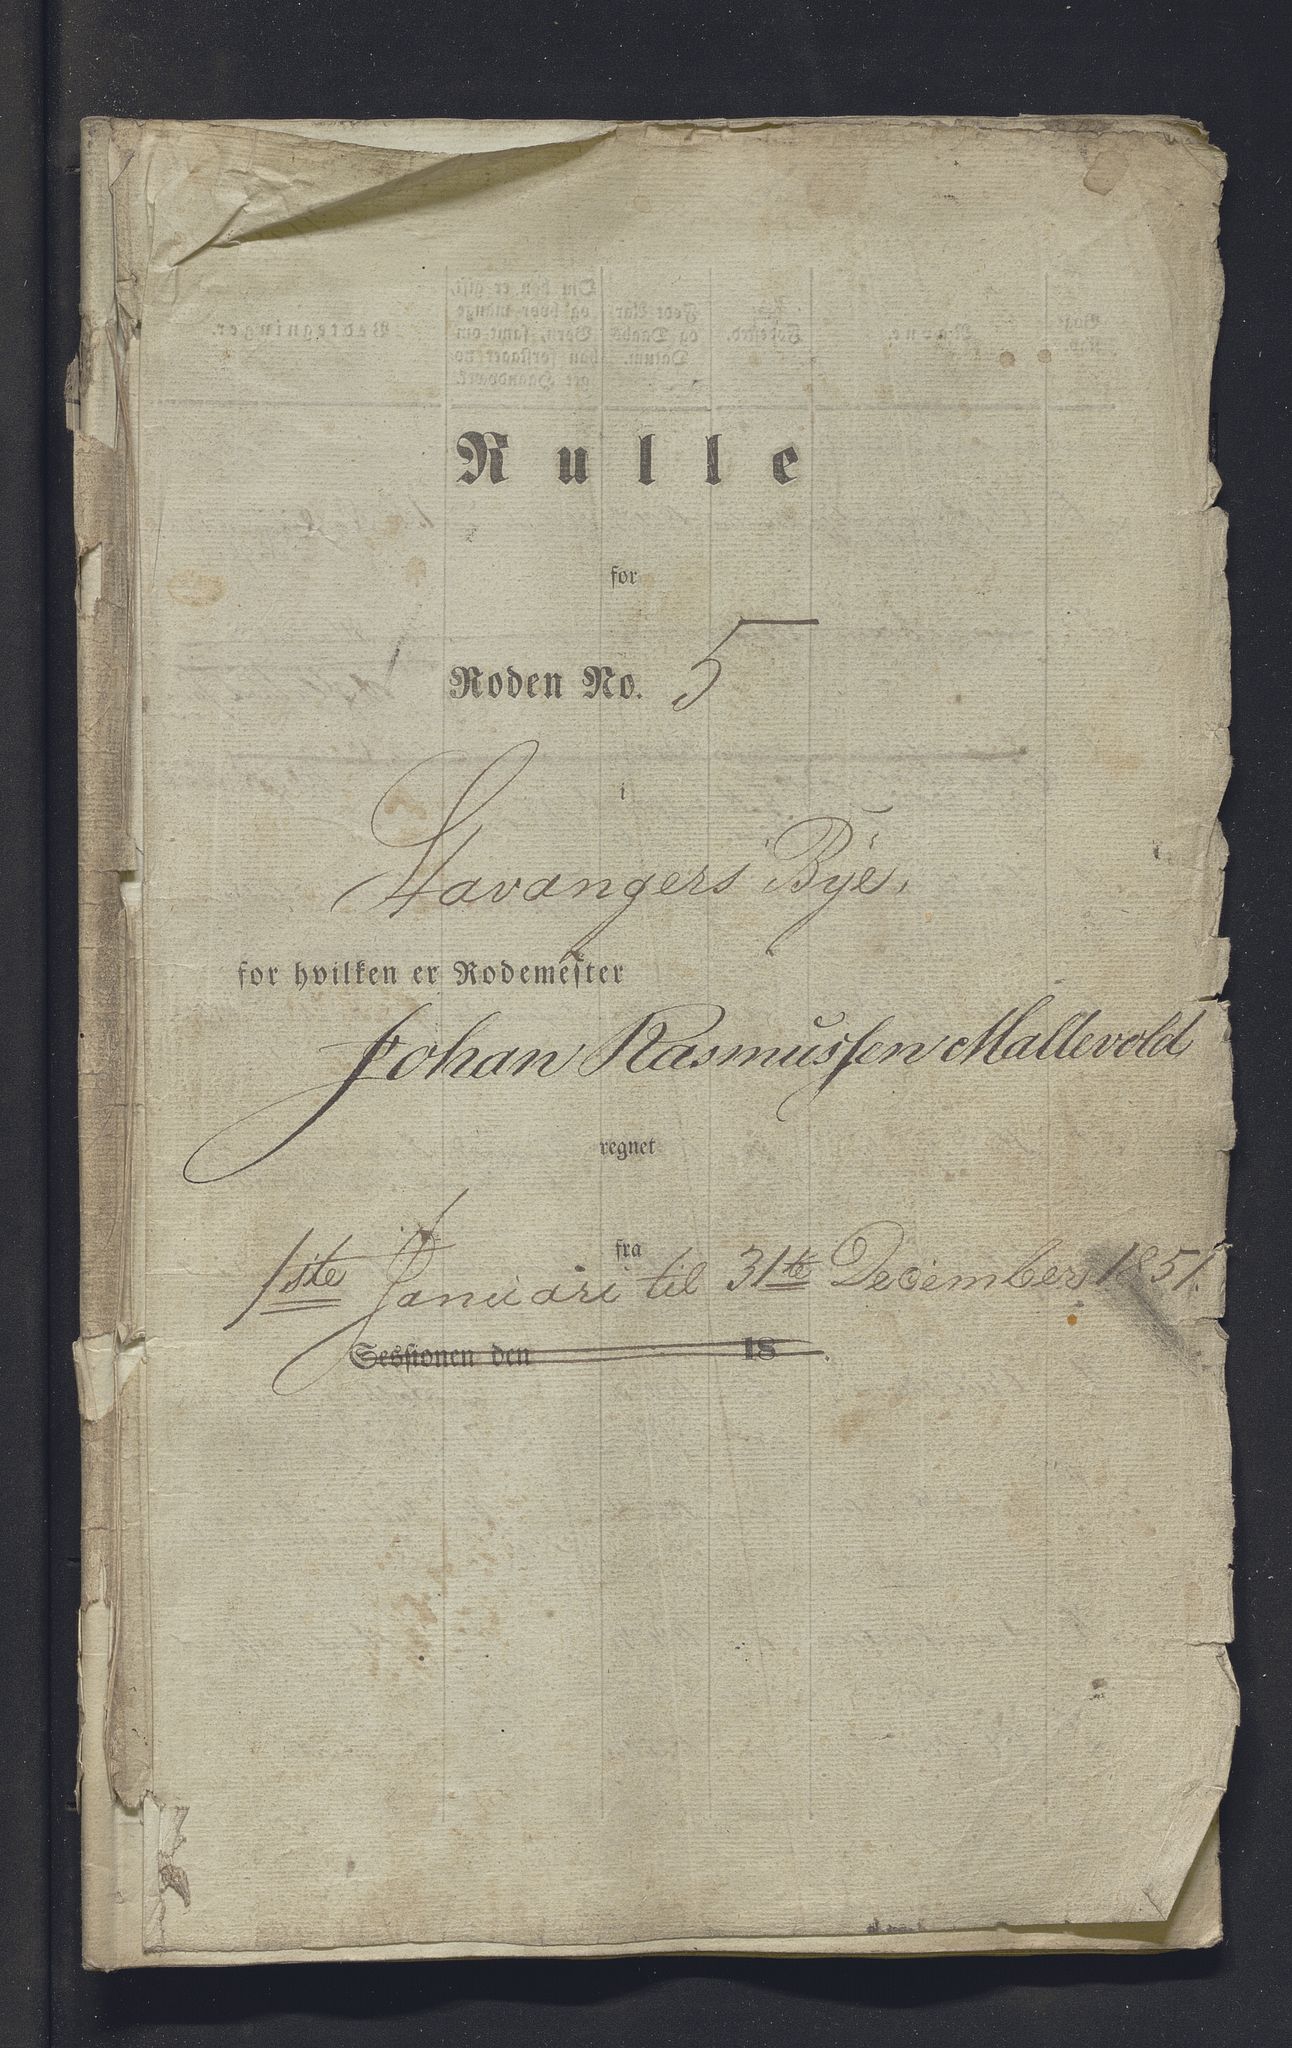 Rulle
for
Roden No. 5
i
Stavangers Bÿe,
for hvilken er Rodemester
Johan Rasmussen Mallevold
regnet
fra
1ste Januari til 31te December 1851.
Sessionen den 18 .